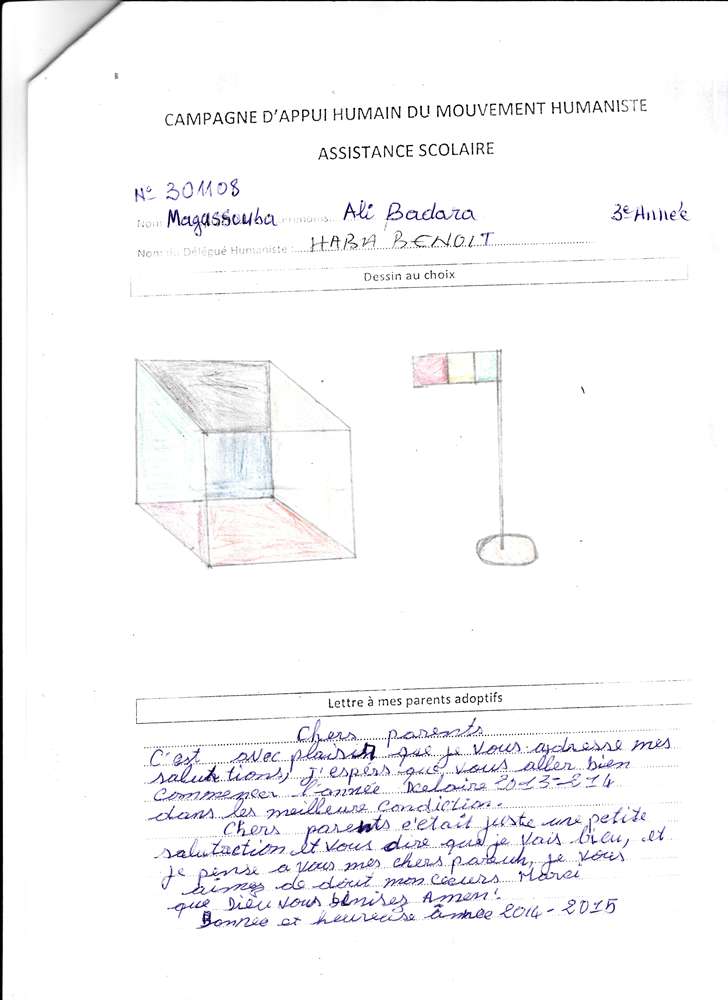 CAMPAGNE D'APPUI HUMAIN DU MOUVEMENT HUMANISTE
ASSISTANCE SCOLAIRE
N° 301108
Nom Magassouba Prénoms.. Ali Badara 3e Année
Nom du Délégué Humaniste : HABA BENOIT
Dessin au choix
Lettre à mes parents adoptifs
Chers parents
C'est avec plaisir que je vous adresse mes
salutations, j'espers que vous aller bien
commencer l'année scolaire 2013-214
dans les meilleure condiction.
Chers parents c'était juste une petite
salutaction et vous dire que je vais bieu, et
je pense a vous mes chers parents, je vous
aimes de dout mon cœurs Marci
que Dieu vous bénises Amen!
Bonnee et heureuse année 2014-2015